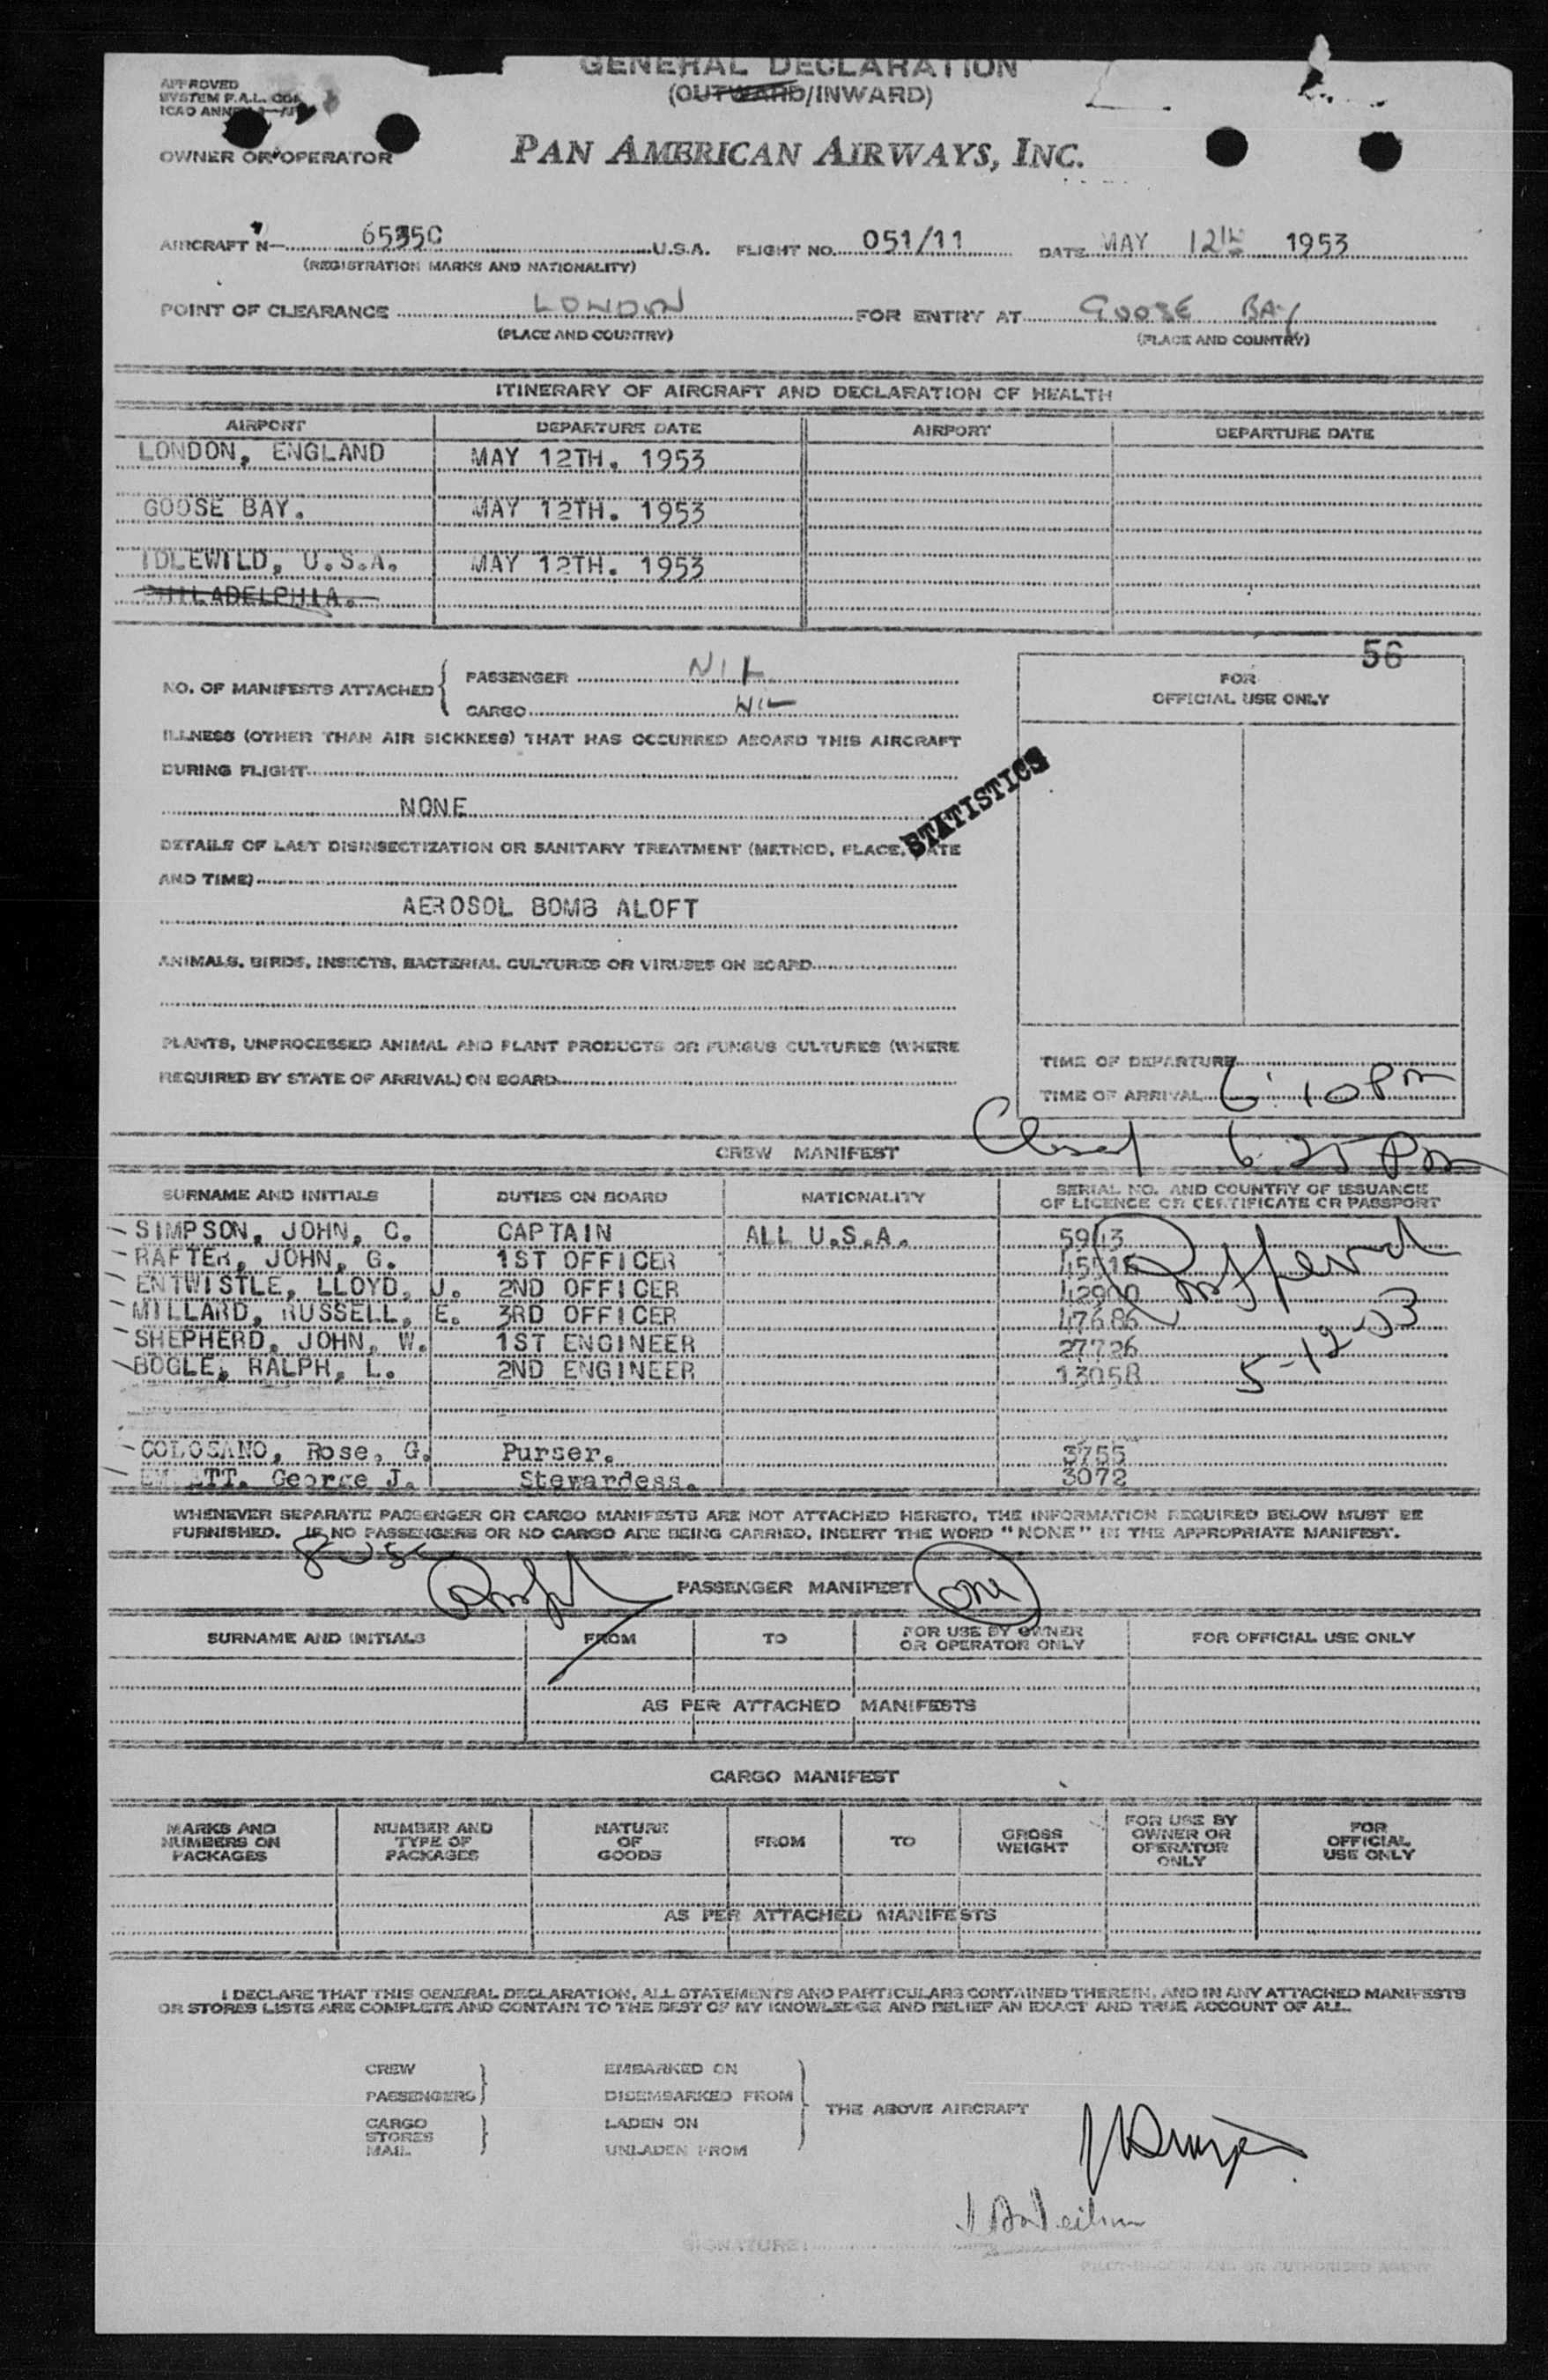 GENERAL DECLARATION
(OUTWARD/INWARD)
APPROVED
SYSTEM F.A.L. COM
ICAO ANNEX
OWNER OR OPERATOR
PAN AMERICAN AIRWAYS, INC.
AIRCRAFT N— 6535C U.S.A. FLIGHT NO. 051/11 DATE MAY 12th 1953
(REGISTRATION MARKS AND NATIONALITY)
POINT OF CLEARANCE LONDON FOR ENTRY AT GOOSE BAY
(PLACE AND COUNTRY) (PLACE AND COUNTRY)
ITINERARY OF AIRCRAFT AND DECLARATION OF HEALTH
AIRPORT DEPARTURE DATE AIRPORT DEPARTURE DATE
LONDON, ENGLAND MAY 12TH. 1953
GOOSE BAY. MAY 12TH. 1953
IDLEWILD, U.S.A. MAY 12TH. 1953
PHILADELPHIA.
56
NO. OF MANIFESTS ATTACHED { PASSENGER NIL
CARGO NIL
FOR
OFFICIAL USE ONLY
ILLNESS (OTHER THAN AIR SICKNESS) THAT HAS OCCURRED ABOARD THIS AIRCRAFT
DURING FLIGHT
NONE
STATISTICS
DETAILS OF LAST DISINSECTIZATION OR SANITARY TREATMENT (METHOD, PLACE, DATE
AND TIME)
AEROSOL BOMB ALOFT
ANIMALS, BIRDS, INSECTS, BACTERIAL CULTURES OR VIRUSES ON BOARD
PLANTS, UNPROCESSED ANIMAL AND PLANT PRODUCTS OR FUNGUS CULTURES (WHERE
REQUIRED BY STATE OF ARRIVAL) ON BOARD
TIME OF DEPARTURE
TIME OF ARRIVAL 6:10 Pm
Closed 6:25 Pm
CREW MANIFEST
SURNAME AND INITIALS DUTIES ON BOARD NATIONALITY SERIAL NO. AND COUNTRY OF ISSUANCE
OF LICENCE OR CERTIFICATE OR PASSPORT
SIMPSON, JOHN, C. CAPTAIN ALL U.S.A. 5943
RAFTER, JOHN, G. 1ST OFFICER 45516
ENTWISTLE, LLOYD, J. 2ND OFFICER 42900
MILLARD, RUSSELL, E. 3RD OFFICER 47686
SHEPHERD, JOHN, W. 1ST ENGINEER 27726
BOGLE, RALPH, L. 2ND ENGINEER 13058
5-12-53
COLOSANO, Rose, G. Purser. 3755
George J. Stewardess. 3072
WHENEVER SEPARATE PASSENGER OR CARGO MANIFESTS ARE NOT ATTACHED HERETO, THE INFORMATION REQUIRED BELOW MUST BE
FURNISHED. IF NO PASSENGERS OR NO CARGO ARE BEING CARRIED, INSERT THE WORD "NONE" IN THE APPROPRIATE MANIFEST.
PASSENGER MANIFEST
SURNAME AND INITIALS FROM TO FOR USE BY OWNER
OR OPERATOR ONLY FOR OFFICIAL USE ONLY
AS PER ATTACHED MANIFESTS
CARGO MANIFEST
MARKS AND
NUMBERS ON
PACKAGES NUMBER AND
TYPE OF
PACKAGES NATURE
OF
GOODS FROM TO GROSS
WEIGHT FOR USE BY
OWNER OR
OPERATOR
ONLY FOR
OFFICIAL
USE ONLY
AS PER ATTACHED MANIFESTS
I DECLARE THAT THIS GENERAL DECLARATION, ALL STATEMENTS AND PARTICULARS CONTAINED THEREIN, AND IN ANY ATTACHED MANIFESTS
OR STORES LISTS ARE COMPLETE AND CONTAIN TO THE BEST OF MY KNOWLEDGE AND BELIEF AN EXACT AND TRUE ACCOUNT OF ALL.
CREW
PASSENGERS }
CARGO
STORES
MAIL }
EMBARKED ON
DISEMBARKED FROM
LADEN ON
UNLADEN FROM
THE ABOVE AIRCRAFT
SIGNATURE:
PILOT-IN-COMMAND OR AUTHORISED AGENT